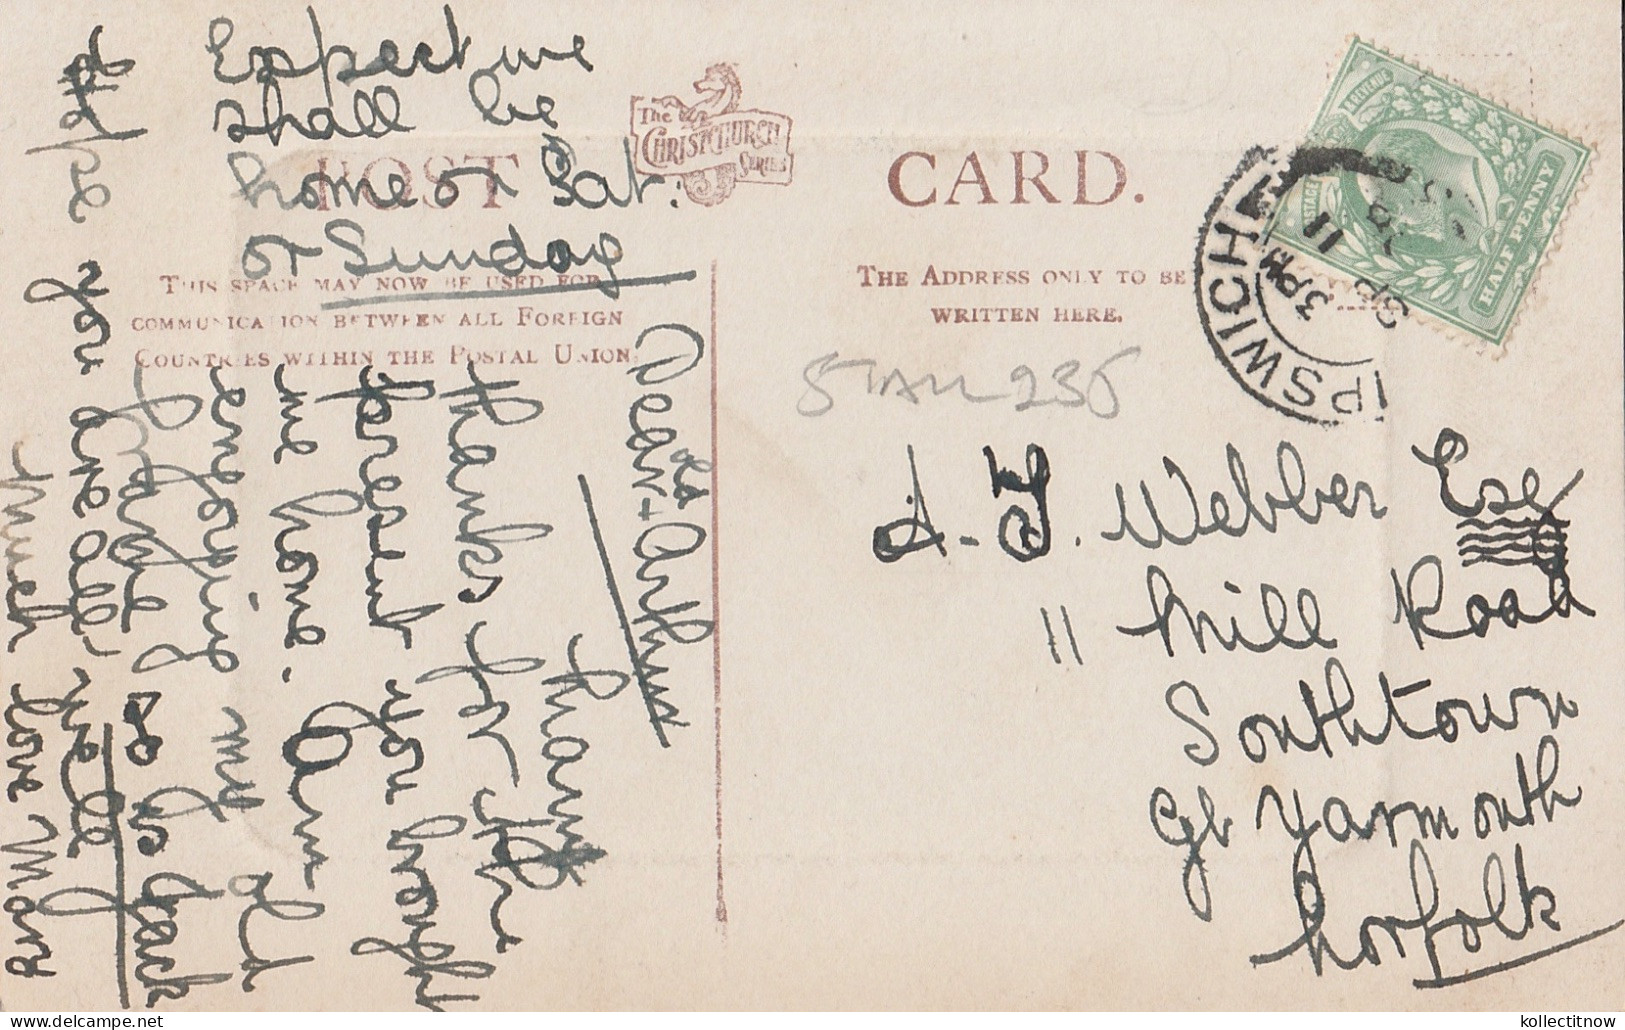 Expect me
shall be
home or Sat.
or Sunday
The
CHRISTCHURCH
SERIES
POST
CARD.
THIS SPACE MAY NOW BE USED FOR
COMMUNICATION BETWEEN ALL FOREIGN
COUNTRIES WITHIN THE POSTAL UNION.
THE ADDRESS ONLY TO BE
WRITTEN HERE.
Dear old Arthur
Many
thanks for the
present you brought
me home. Am
enjoying my old
self so is Jack
Hope you are all well
much love Mary
IPSWICH
3 PM
SP
11
& REVENUE
POSTAGE
HALF PENNY
A. J. Webber Esq
11 Mill Road
Southtown
Gt Yarmouth
Norfolk
kollectitnow